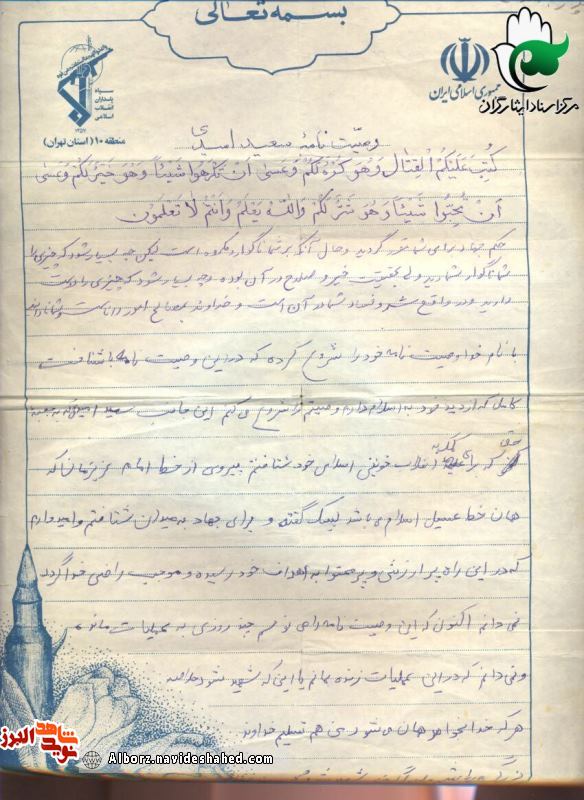 بسمه تعالی
جمهوری اسلامی ایران
مرکز اسناد ایثارگران
سپاه
پاسداران
انقلاب
اسلامی
منطقه ۱۰ (استان تهران)
وصیت نامهٔ سعید اسدی
کُتِبَ عَلَیْکُمُ الْقِتٰالُ وَهُوَ کُرْهٌ لَکُمْ وَعَسیٰ اَنْ تَکْرَهُوا شَیْئاً وَهُوَ خَیْرٌ لَکُمْ وَعَسیٰ
اَنْ تُحِبُّوا شَیْئاً وَهُوَ شَرٌّ لَکُمْ وَاللّهُ یَعْلَمُ وَاَنْتُمْ لا تَعْلَمُونَ
حکم جهاد برای شما مقرر گردید و حال آنکه بر شما ناگوار و مکروه است لیکن چه بسیار شود که چیزی را
شما ناگوار شمارید ولی بحقیقت خیر و صلاح در آن بوده و چه بسیار شود که چیزی را دوست
دارید و در واقع شر و فساد شما در آن است و خداوند بمصالح امور داناست و شما نادانید
با نام خدا وصیت نامه خود را شروع کرده که در این وصیت نامه با شناخت
کامل که از دید خود به اسلام دارم وصیتم را شروع می کنم این جانب سعید
حق که برای کمک به انقلاب خونین اسلامی خود شتافتم پیروی از خط امام عزیزمان که
همان خط اصیل اسلام می باشد لبیک گفته و برای جهاد به میدان شتافتم و امیدوارم
که در این راه پر ارزش و پر محتوا به اهداف خود رسیده و موجب راضی خدا گردد
نمی دانم اکنون که این وصیت نامه را می نویسم چند روزی به عملیات مانده
و نمی دانم که در این عملیات زنده بمانم یا این که شهید شوم
هر که خدا بخواهد همان می شود من هم تسلیم خداوند
نوید شاهد البرز
Alborz.navideshahed.com